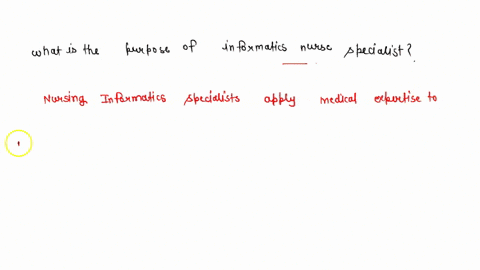 what is the purpose of informatics nurse specialist?
Nursing Informatics specialists apply medical expertise to